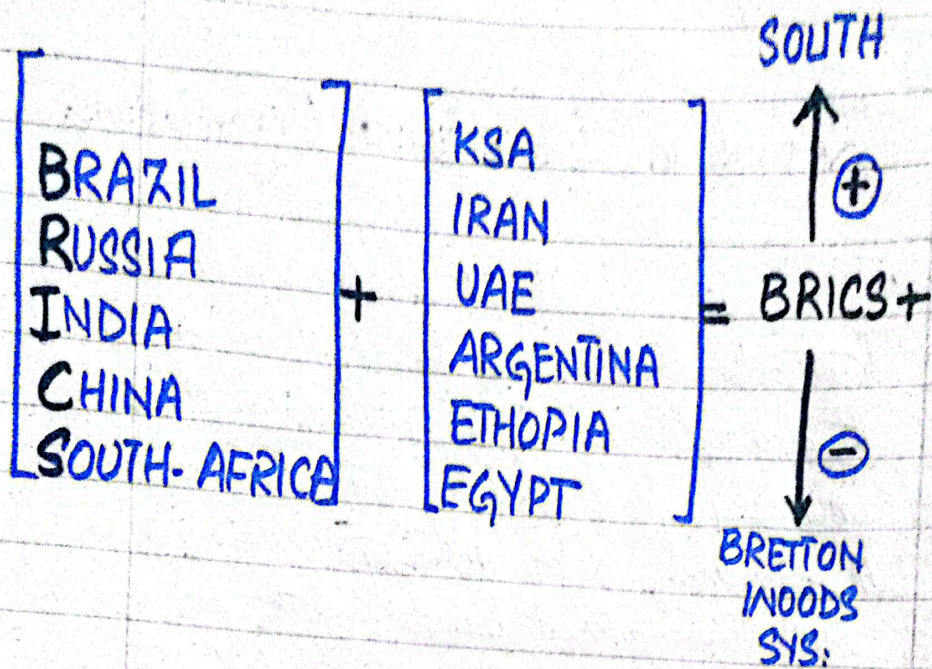 BRAZIL
RUSSIA
INDIA
CHINA
SOUTH-AFRICA
+
KSA
IRAN
UAE
ARGENTINA
ETHOPIA
EGYPT
=
SOUTH
+
BRICS+
-
BRETTON
WOODS
SYS: